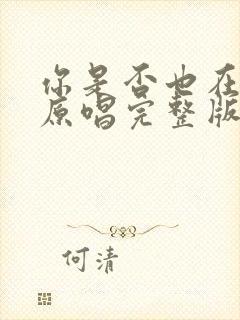 你是否也在
原唱完整版
何清